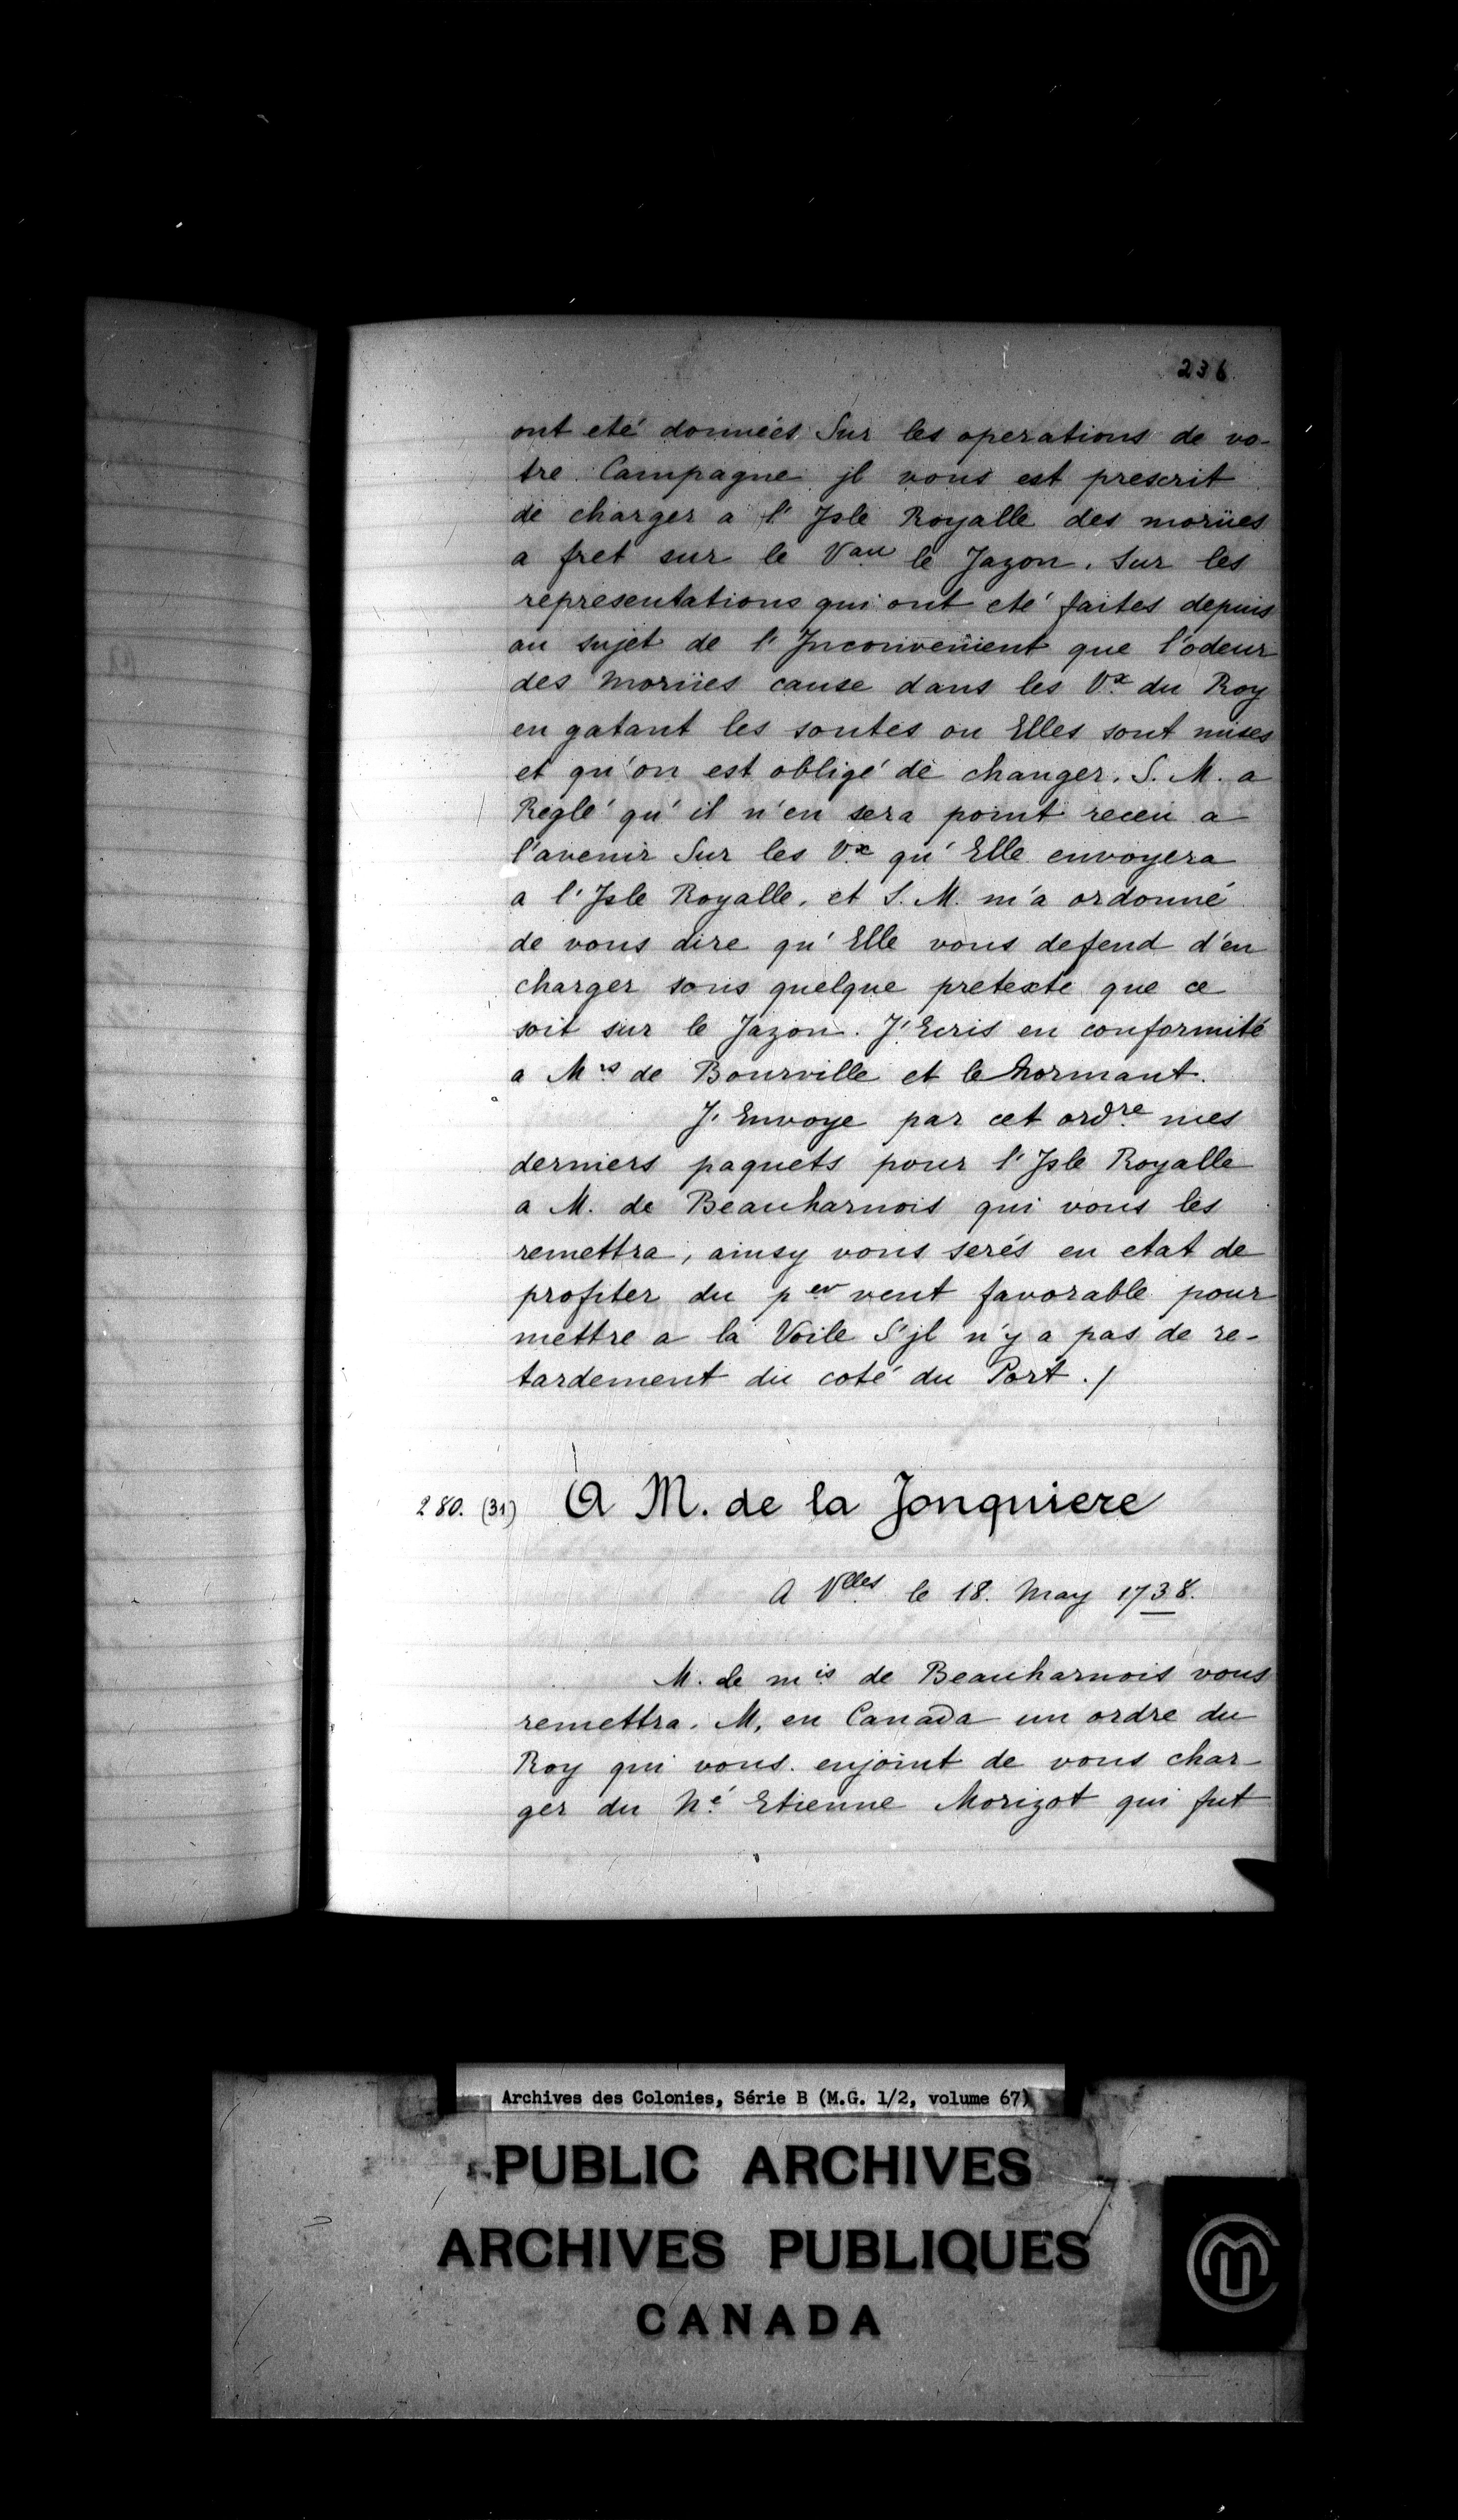 236
ont eté données Sur les operations de vo-
tre Campagne jl vous est prescrit
de charger a l'Jsle Royalle des moruës
a fret sur le Vau le Jazon. Sur les
representations qui ont eté faites depuis
au sujet de l'Jnconvenient que l'odeur
des moruës cause dans les Vx du Roy
en gatant les soutes ou Elles sont mises
et qu'on est obligé de changer. S. M. a
Reglé qu'il n'en sera point receu a
l'avenir Sur les Vx qu'Elle envoyera
a l'Jsle Royalle, et S. M. m'a ordonné
de vous dire qu'Elle vous defend d'en
charger sous quelque pretexte que ce
soit sur le Jazon. J'Ecris en conformité
a Mrs de Bourville et le Normant.
J'Envoye par cet ordre mes
derniers paquets pour l'Jsle Royalle
a M. de Beauharnois qui vous les
remettra, ainsy vous serés en etat de
profiter du per vent favorable pour
mettre a la Voile S'jl n'y a pas de re-
tardement du coté du Port ./
280. (31) A M. de la Jonquiere
A Vlles le 18. May 1738.
M. le mis de Beauharnois vous
remettra, M, en Canada un ordre du
Roy qui vous enjoint de vous char-
ger du Né Etienne Morizot qui fut
Archives des Colonies, Série B (M.G. 1/2, volume 67)
PUBLIC ARCHIVES
ARCHIVES PUBLIQUES
CANADA